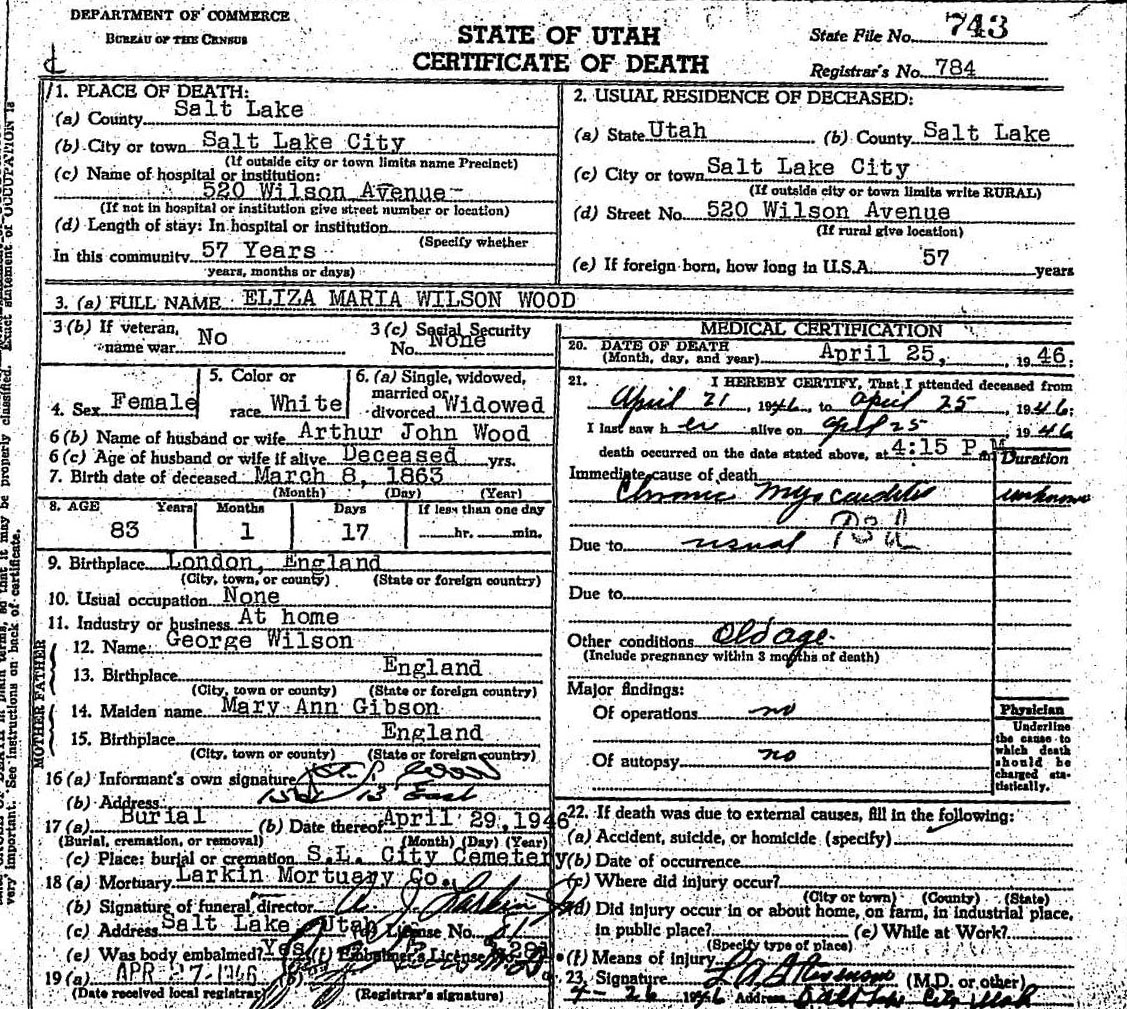 DEPARTMENT OF COMMERCE
BUREAU OF THE CENSUS
STATE OF UTAH
CERTIFICATE OF DEATH
State File No. 743
Registrar's No. 784
1. PLACE OF DEATH:
(a) County Salt Lake
(b) City or town Salt Lake City
(If outside city or town limits name Precinct)
(c) Name of hospital or institution:
520 Wilson Avenue
(If not in hospital or institution give street number or location)
(d) Length of stay: In hospital or institution
(Specify whether
In this community 57 Years
years, months or days)
2. USUAL RESIDENCE OF DECEASED:
(a) State Utah (b) County Salt Lake
(c) City or town Salt Lake City
(If outside city or town limits write RURAL)
(d) Street No. 520 Wilson Avenue
(If rural give location)
(e) If foreign born, how long in U.S.A. 57 years
3. (a) FULL NAME ELIZA MARIA WILSON WOOD
3 (b) If veteran, name war No
3 (c) Social Security No. None
4. Sex Female
5. Color or race White
6. (a) Single, widowed, married or divorced Widowed
6 (b) Name of husband or wife Arthur John Wood
6 (c) Age of husband or wife if alive Deceased yrs.
7. Birth date of deceased March 8, 1863
(Month) (Day) (Year)
8. AGE Years Months Days If less than one day
83 1 17 hr. min.
9. Birthplace London, England
(City, town, or county) (State or foreign country)
10. Usual occupation None
11. Industry or business At home
FATHER
12. Name George Wilson
13. Birthplace England
(City, town or county) (State or foreign country)
MOTHER
14. Maiden name Mary Ann Gibson
15. Birthplace England
(City, town or county) (State or foreign country)
16 (a) Informant's own signature Wood
(b) Address 13 East
17 (a) Burial (b) Date thereof April 29, 1946
(Burial, cremation, or removal) (Month) (Day) (Year)
(c) Place: burial or cremation S.L. City Cemetery
18 (a) Mortuary Larkin Mortuary Co.
(b) Signature of funeral director Larkin
(c) Address Salt Lake, Utah (d) License No.
(e) Was body embalmed? Yes (f) Embalmer's License No.
19 (a) APR 27 1946 (b)
(Date received local registrar) (Registrar's signature)
MEDICAL CERTIFICATION
20. DATE OF DEATH
(Month, day, and year) April 25, 1946;
21. I HEREBY CERTIFY, That I attended deceased from
April 21, 1946, to April 25, 1946;
I last saw her alive on April 25 1946
death occurred on the date stated above, at 4:15 P.M.
Duration
Immediate cause of death
Chronic Myocarditis unknown
Due to usual
Due to
Other conditions Old age
(Include pregnancy within 3 months of death)
Major findings:
Of operations no
Of autopsy no
Physician
Underline
the cause to
which death
should be
charged sta-
tistically.
22. If death was due to external causes, fill in the following:
(a) Accident, suicide, or homicide (specify)
(b) Date of occurrence
(c) Where did injury occur?
(City or town) (County) (State)
(d) Did injury occur in or about home, on farm, in industrial place,
in public place? (e) While at Work?
(Specify type of place)
(f) Means of injury
23. Signature (M.D. or other)
4-26 1946 Address Salt Lake City Utah